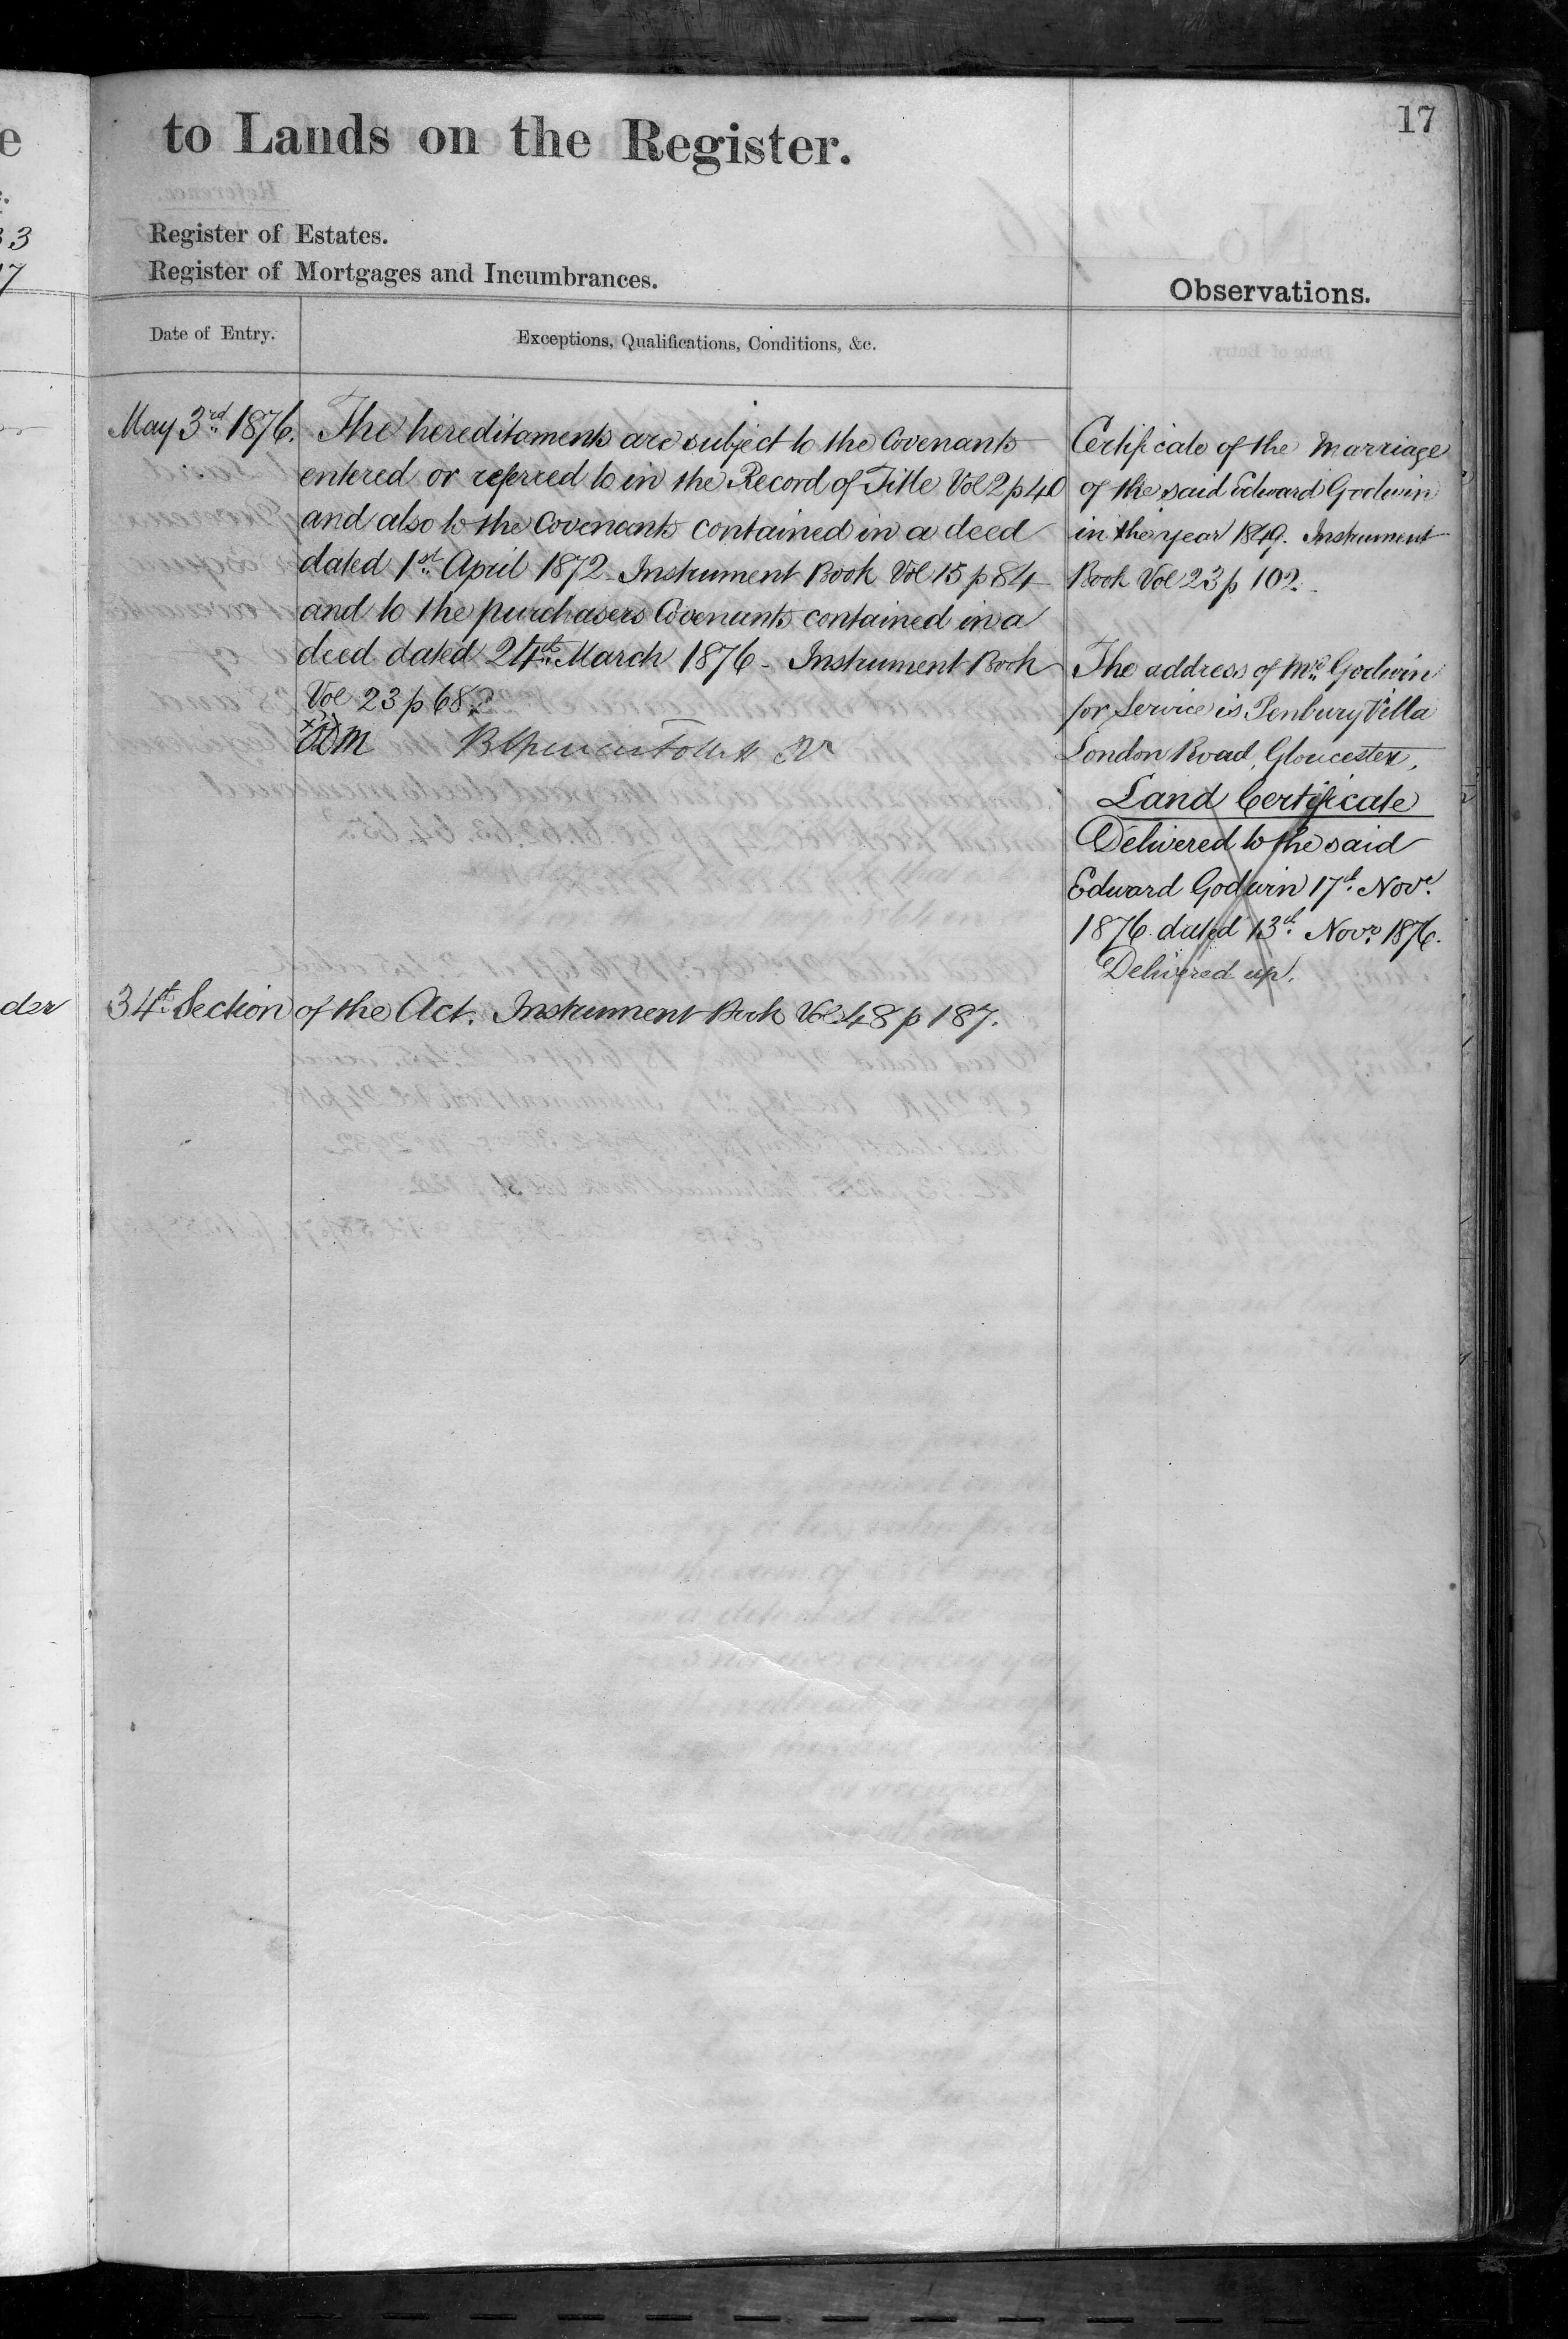 17
to Lands on the Register.
Register of Estates.
Register of Mortgages and Incumbrances.
Observations.
Date of Entry.
Exceptions, Qualifications, Conditions, &c.
May 3rd 1876.
The hereditaments are subject to the Covenants
entered or referred to in the Record of Title Vol 2 p 40
and also to the Covenants contained in a deed
dated 1st April 1872 Instrument Book Vol 15 p 84
and to the purchasers Covenants contained in a
deed dated 24th March 1876 - Instrument Book
Vol 23 p 68
34th Section of the Act. Instrument Book Vol 48 p 187.
Certificate of the Marriage
of the said Edward Godwin
in the year 1849. Instrument
Book Vol 23 p 102.
The address of Mrs Godwin
for Service is Penbury Villa
London Road, Gloucester,
Land Certificate
Delivered to the said
Edward Godwin 17th Novr
1876 dated 13th Novr 1876.
Delivered up.
33
17
der